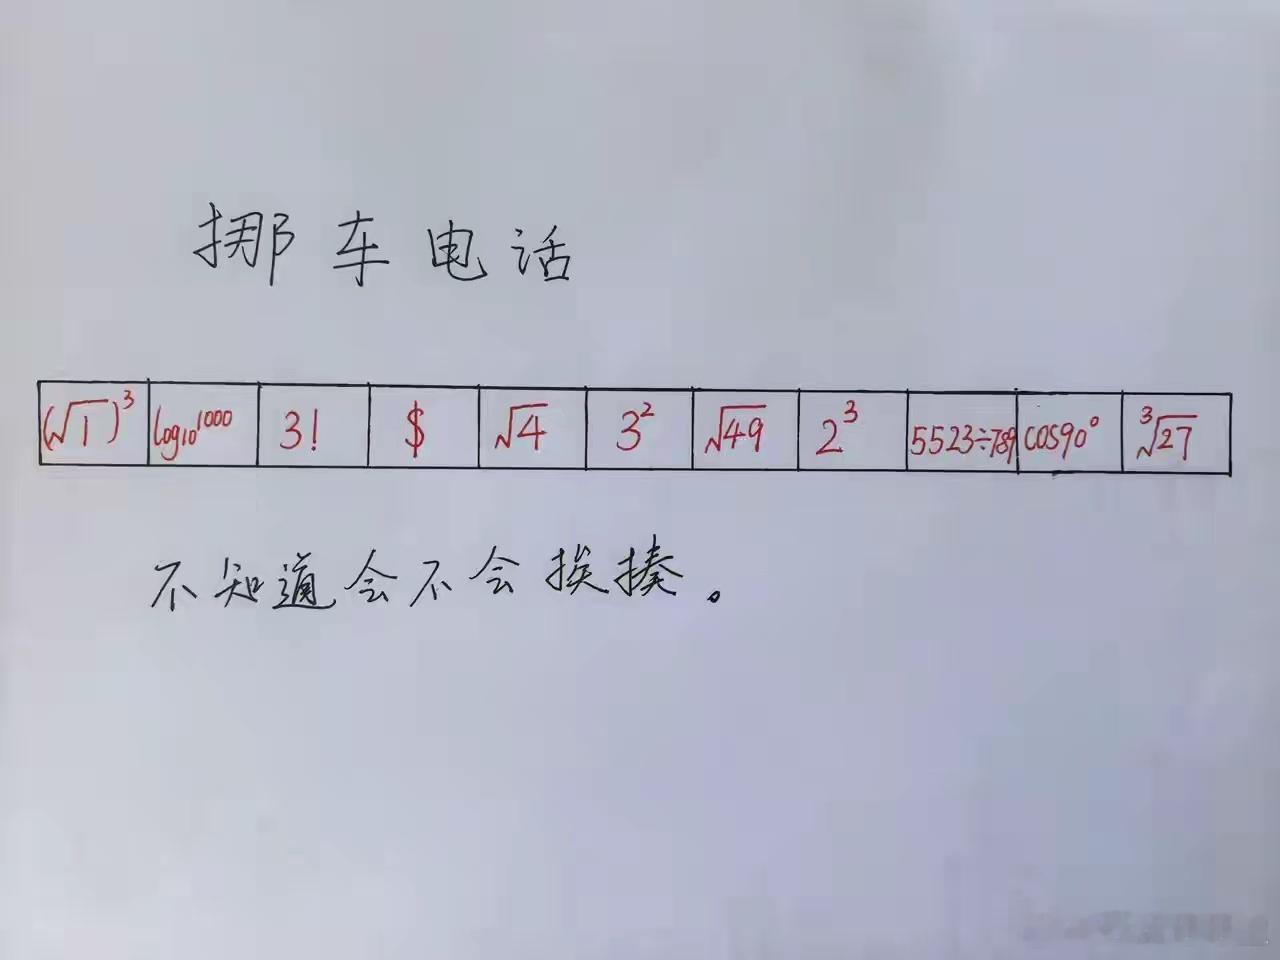 挪车电话
(√1)³ log₁₀1000 3! $ √4 3² √49 2³ 5523÷789 cos90° ³√27
不知道会不会挨揍。